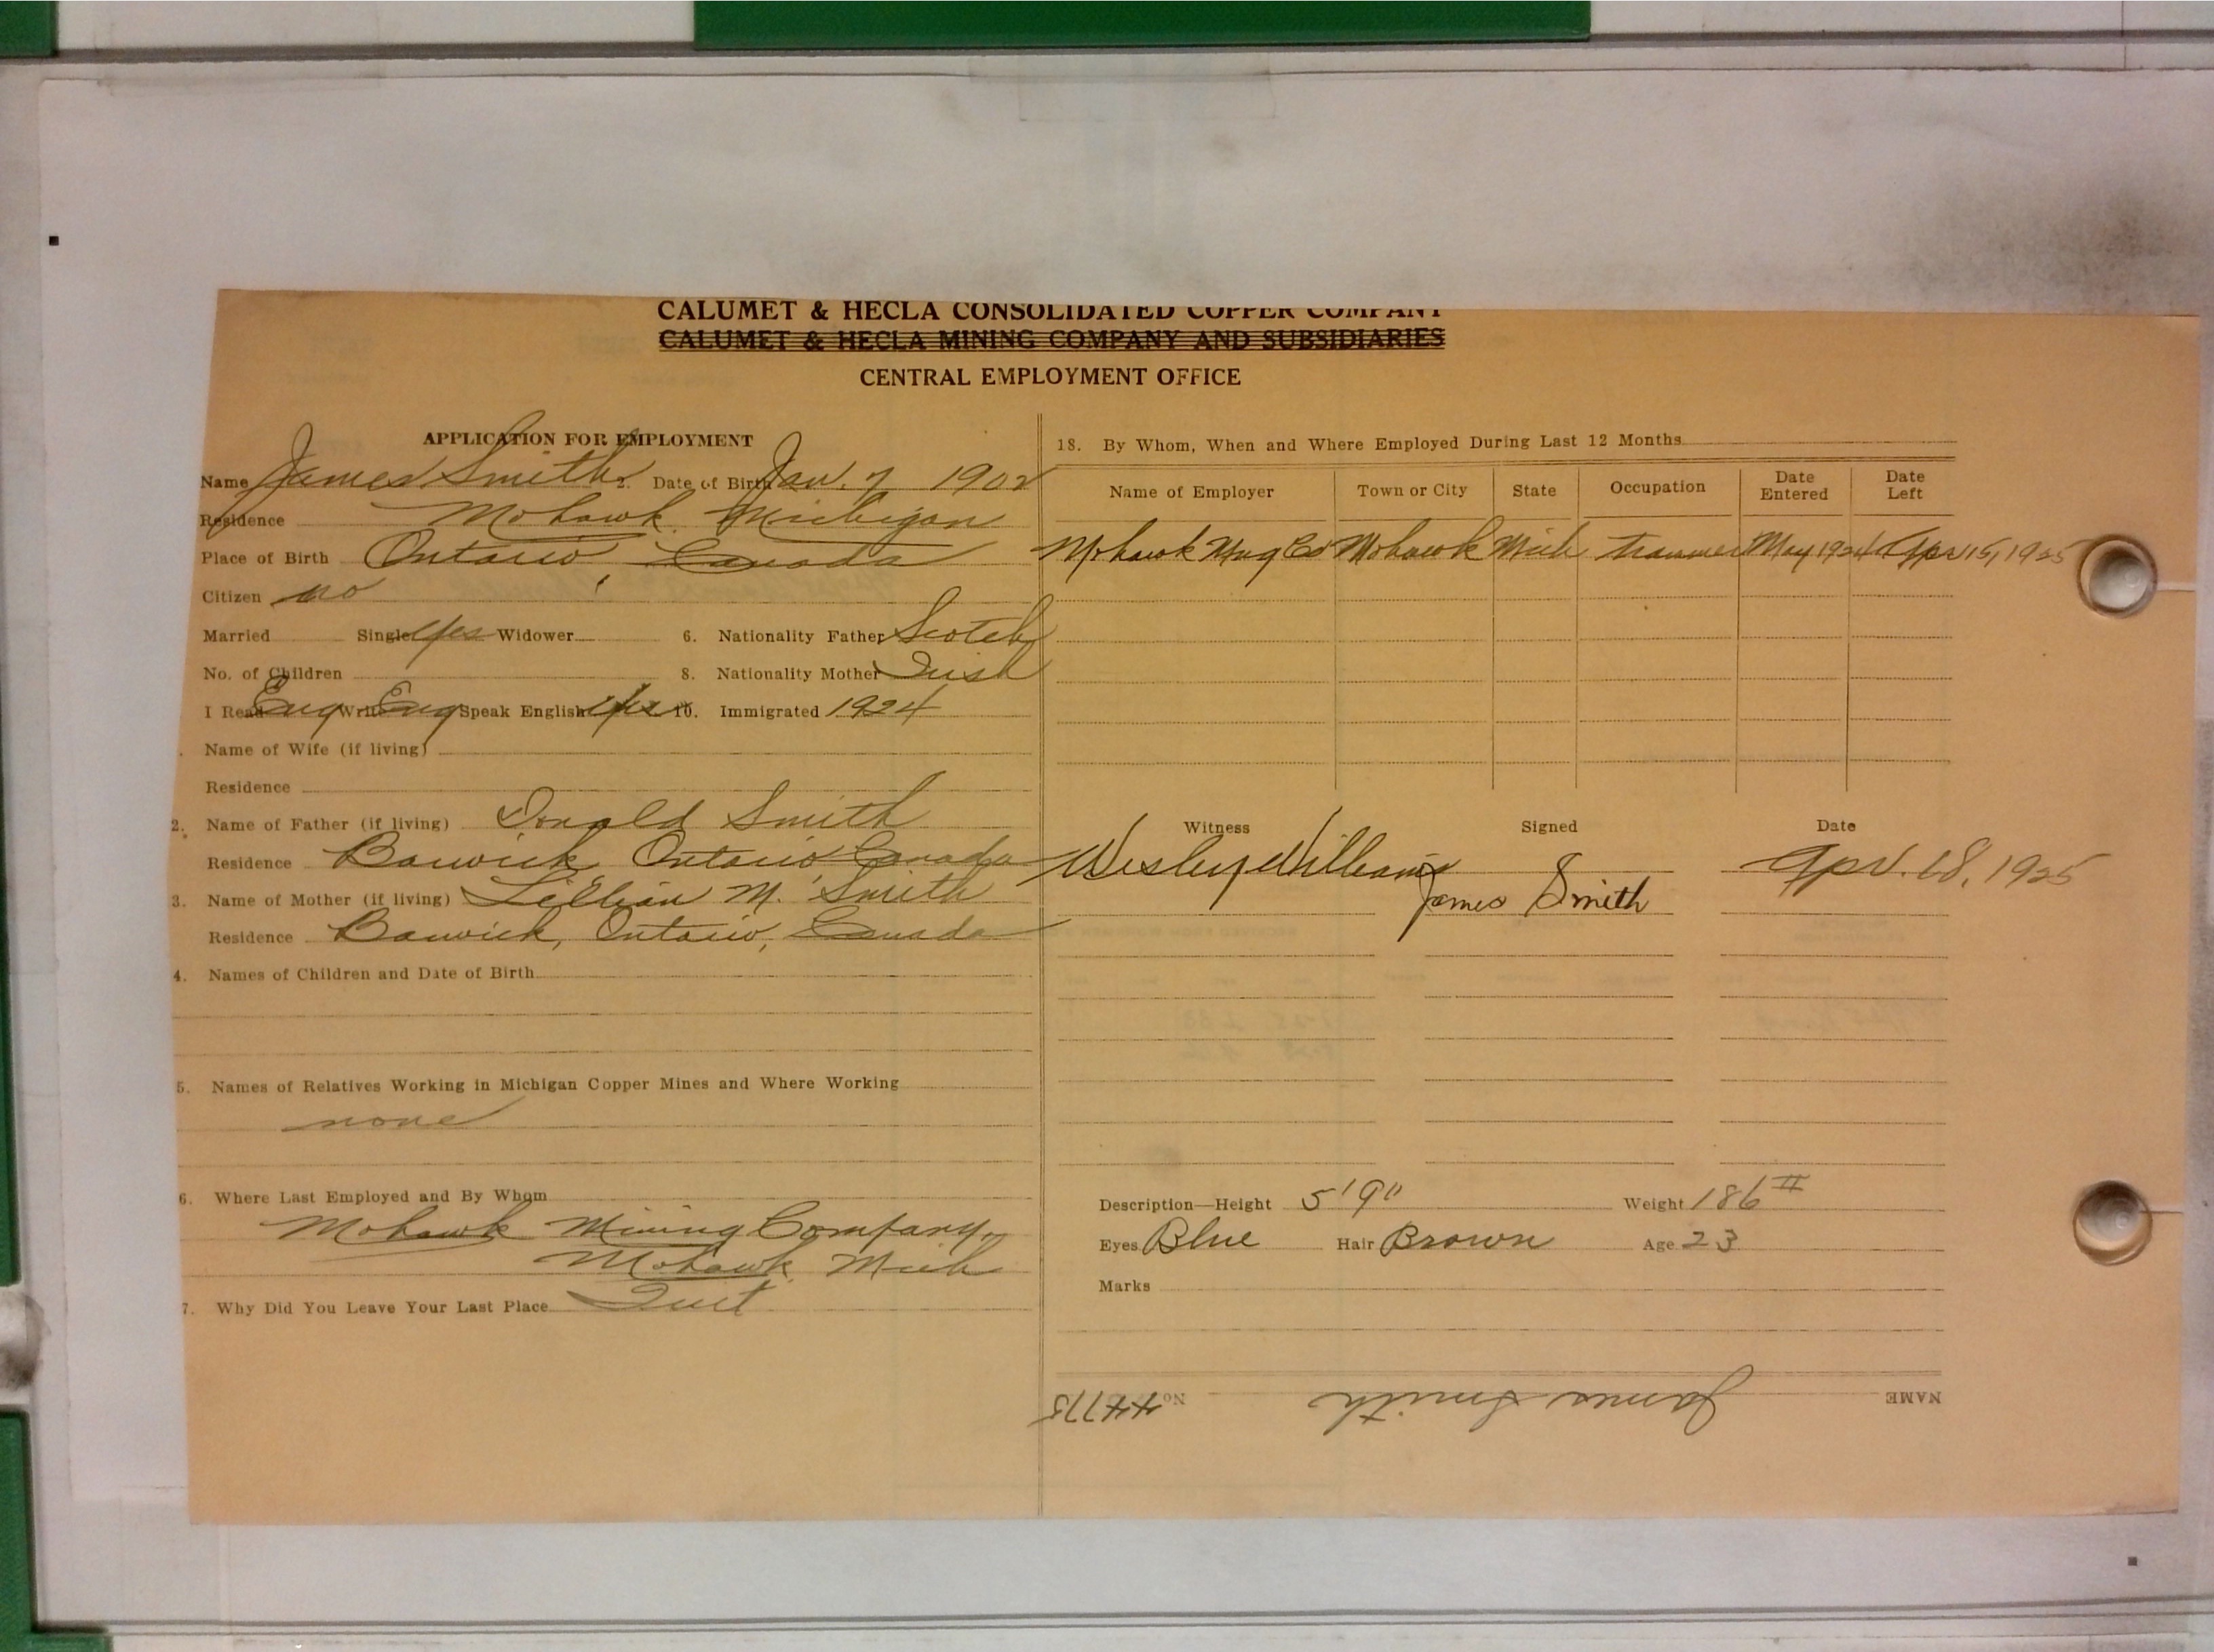 CALUMET & HECLA CONSOLIDATED COPPER COMPANY
CALUMET & HECLA MINING COMPANY AND SUBSIDIARIES
CENTRAL EMPLOYMENT OFFICE
APPLICATION FOR EMPLOYMENT
Name James Smith 2. Date of Birth Jan. 7 1902
Residence Mohawk, Michigan
Place of Birth Ontario, Canada
Citizen no
Married Single Yes Widower 6. Nationality Father Scotch
No. of Children 8. Nationality Mother Irish
I Read Eng Write Eng Speak English Yes 10. Immigrated 1924
Name of Wife (if living)
Residence
2. Name of Father (if living) Donald Smith
Residence Barwick, Ontario, Canada
3. Name of Mother (if living) Lillian M. Smith
Residence Barwick, Ontario, Canada
4. Names of Children and Date of Birth
5. Names of Relatives Working in Michigan Copper Mines and Where Working
none
6. Where Last Employed and By Whom
Mohawk Mining Company,
Mohawk, Mich
7. Why Did You Leave Your Last Place Quit
18. By Whom, When and Where Employed During Last 12 Months
Name of Employer Town or City State Occupation Date Entered Date Left
Mohawk Mng Co Mohawk Mich trammer May 1924 Apr 15, 1925
Witness Signed Date
Wesley Williams James Smith Apr. 18, 1925
Description—Height 5'9" Weight 186#
Eyes Blue Hair Brown Age 23
Marks
NAME James Smith No 44775